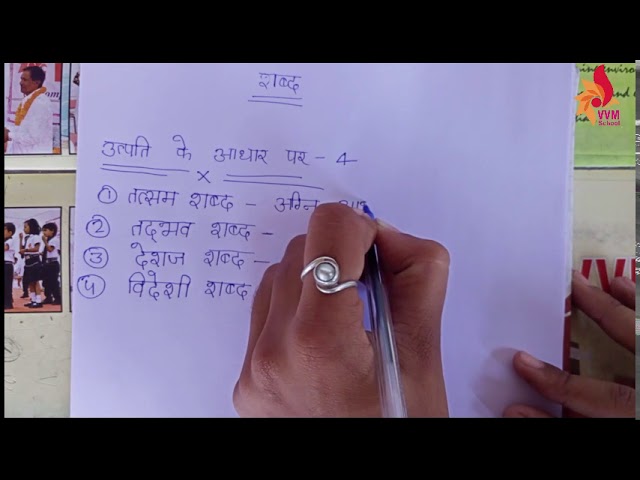 शब्द
उत्पति के आधार पर - 4
×
① तत्सम शब्द - अग्नि
② तद्भव शब्द -
③ देशज शब्द -
④ विदेशी शब्द
VVM
School
VVM